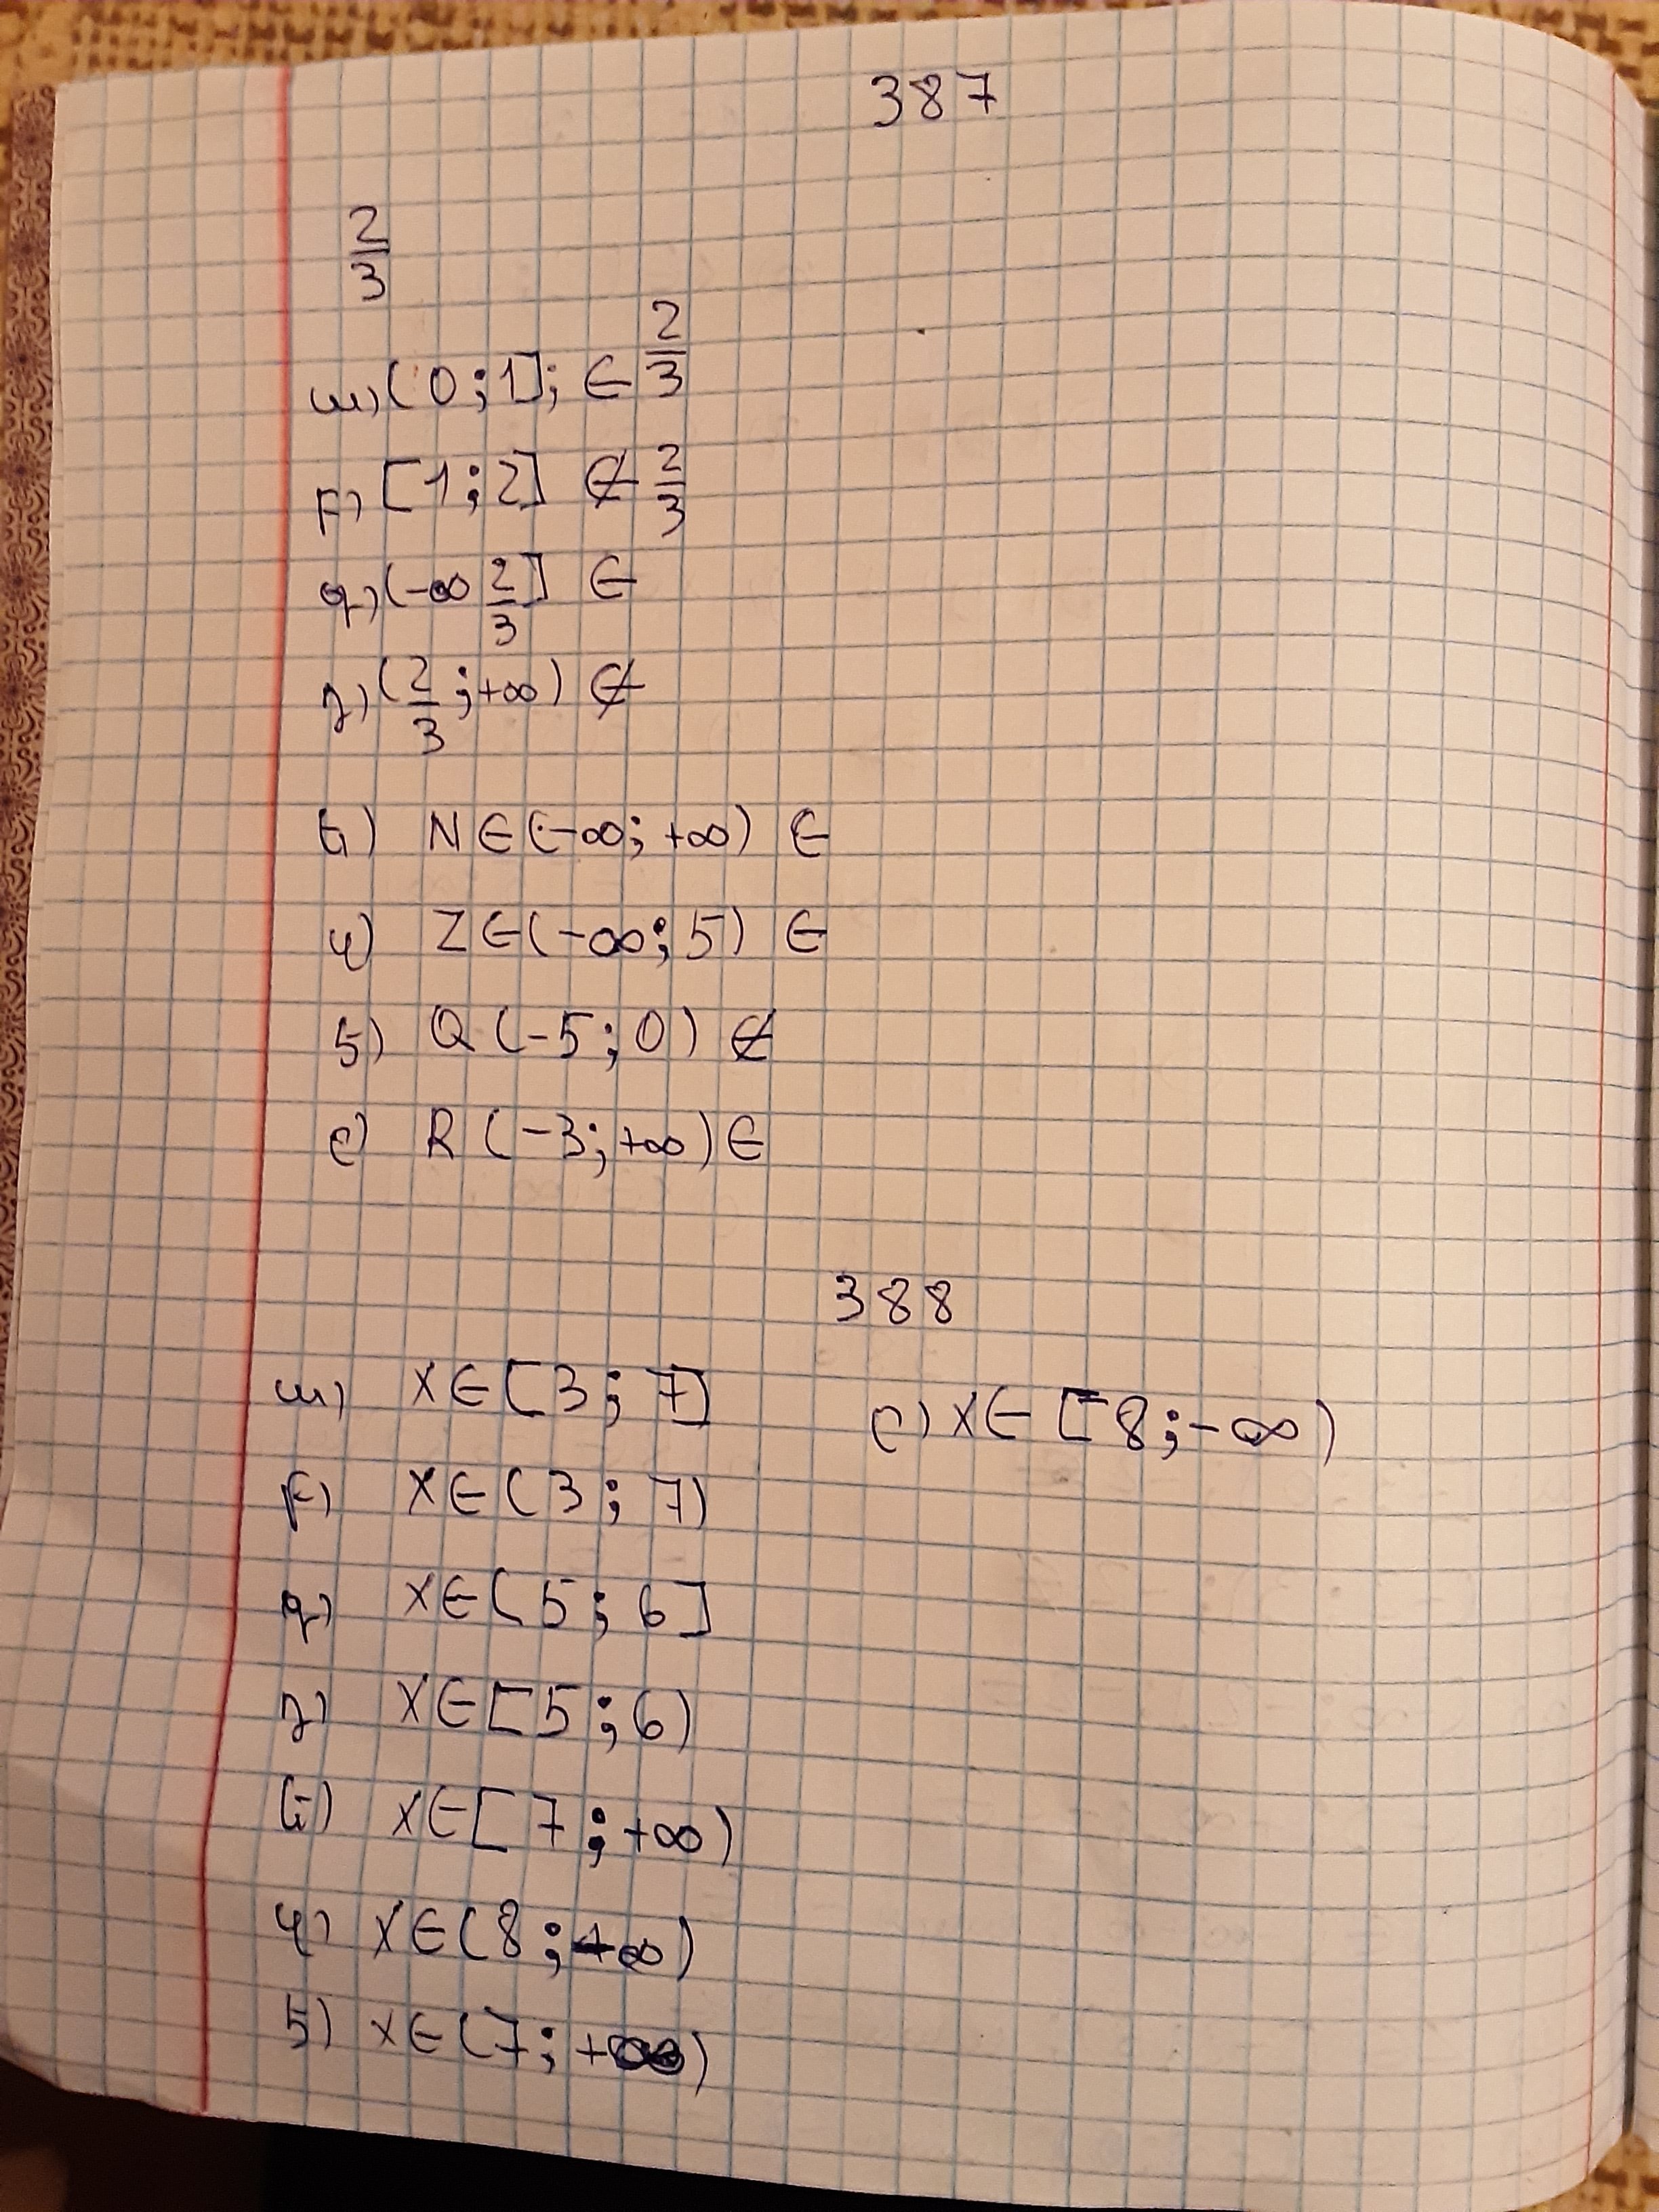 387
2/3
ա) (0;1]; ∈ 2/3
բ) [1;2] ∉ 2/3
գ) (-∞ 2/3] ∈
դ) (2/3;+∞) ∉
ե) N∈(-∞; +∞) ∈
զ) Z∈(-∞;5) ∈
է) Q(-5;0) ∉
ը) R(-3;+∞)∈
388
ա) x∈[3;7]
ը) x∈[-8;-∞)
բ) x∈(3;7)
գ) x∈(5;6]
դ) x∈[5;6)
ե) x∈[7;+∞)
զ) x∈(8;+∞)
է) x∈(7;+∞)